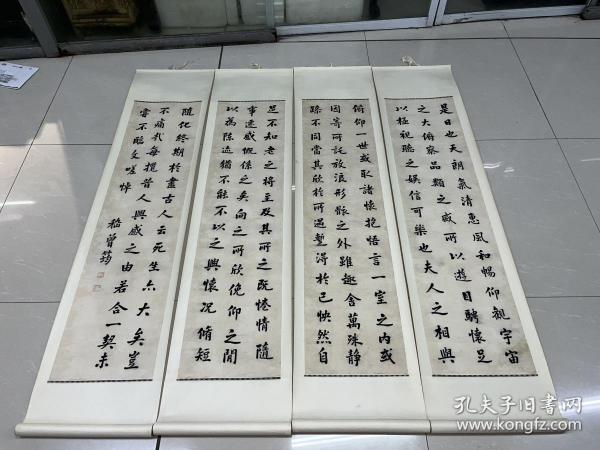 是日也天朗氣清惠風和暢仰觀宇宙
之大俯察品類之盛所以遊目騁懷足
以極視聽之娛信可樂也夫人之相與
俯仰一世或取諸懷抱悟言一室之內或
因寄所託放浪形骸之外雖趣舍萬殊靜
躁不同當其欣於所遇蹔得於己怏然自
足不知老之將至及其所之既惓情隨
事遷感慨係之矣向之所欣俛仰之間
以為陳迹猶不能不以之興懷况脩短
隨化終期於盡古人云死生亦大矣豈
不痛哉每攬昔人興感之由若合一契未
嘗不臨文嗟悼
嵇曾筠
孔夫子旧书网
www.kongfz.com